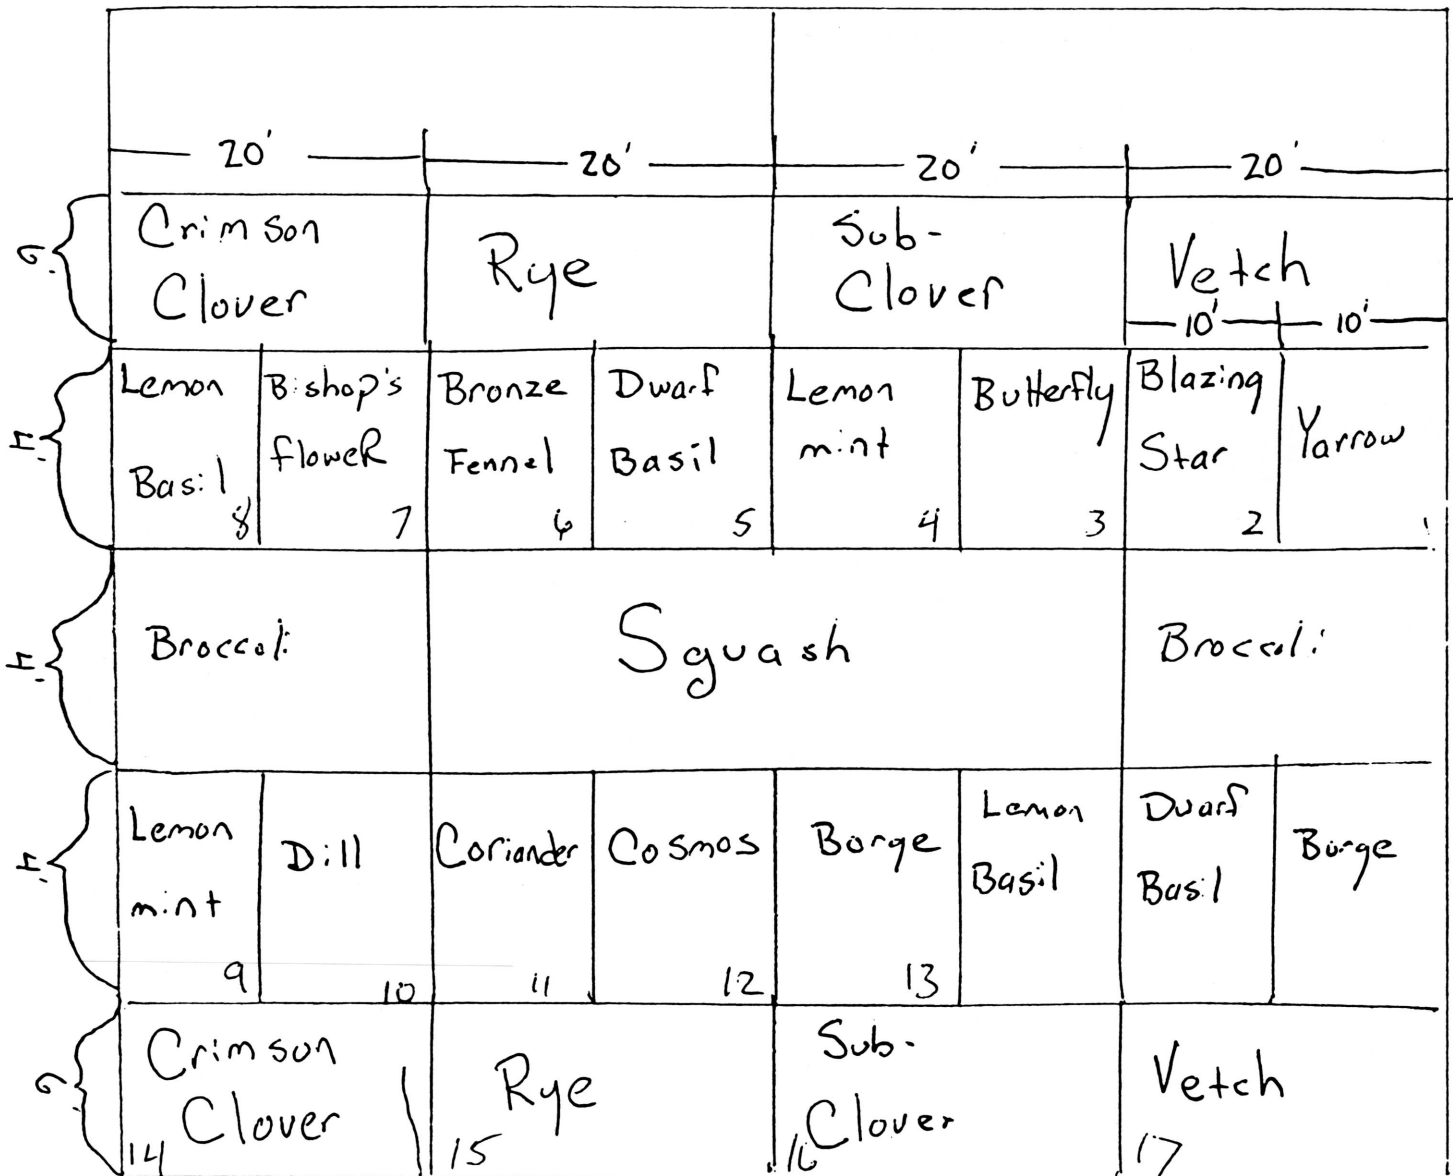 20' 20' 20' 20'
Crimson
Clover
Rye
Sub-
Clover
Vetch
10' 10'
Lemon
Basil
8
Bishop's
floweR
7
Bronze
Fennel
6
Dwarf
Basil
5
Lemon
mint
4
Butterfly
3
Blazing
Star
2
Yarrow
1
Broccoli
Squash
Broccoli
Lemon
mint
9
Dill
10
Coriander
11
Cosmos
12
Borge
13
Lemon
Basil
Dwarf
Basil
Borge
Crimson
Clover
14
Rye
15
Sub-
Clover
16
Vetch
17